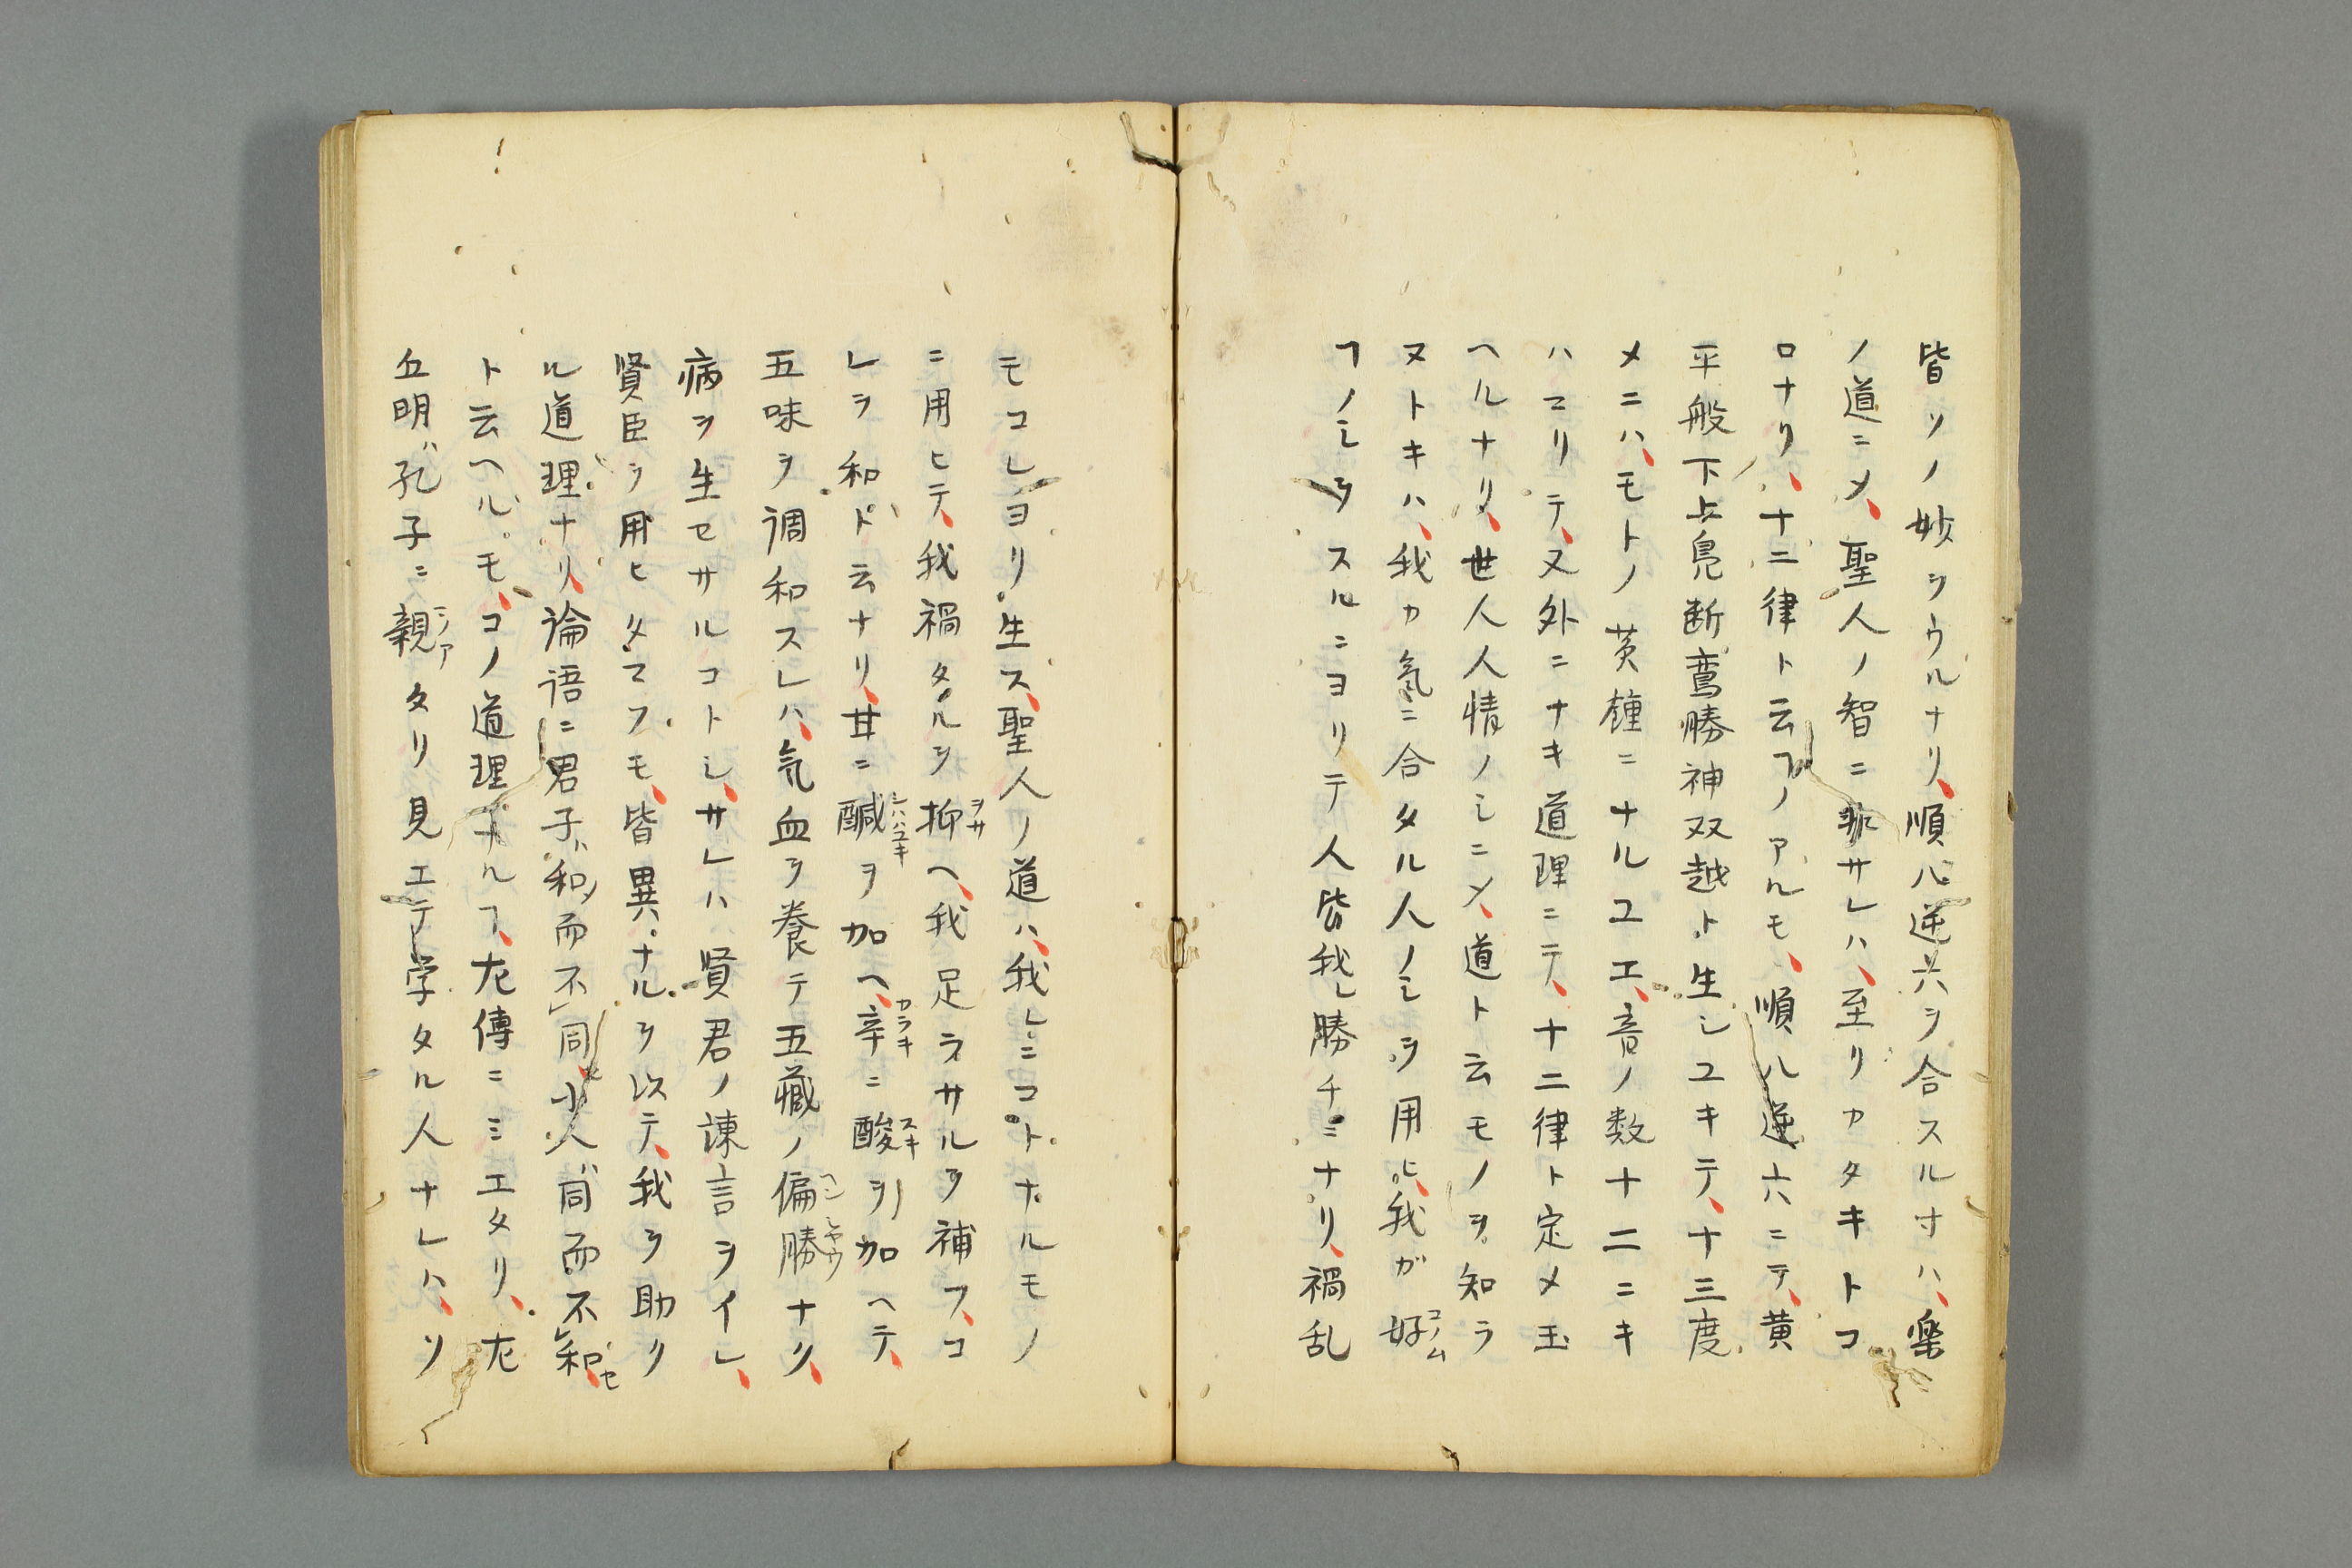 皆ソノ妙ヲウルナリ、順八逆六ヲ合スル寸ハ、楽
ノ道ニ〆、聖人ノ智ニ非サレハ、至リカタキトコ
ロナリ、十二律ト云フノアルモ、順八逆六ニテ、黄
平般下上鳧断鸞勝神双越ト生シユキテ、十三度
メニハ、モトノ黄鐘ニナルユエ、音ノ数十二ニキ
ハマリテ、又外ニナキ道理ニテ、十二律ト定メ玉
ヘルナリ、世人人情ノミニ〆、道ト云モノヲ知ラ
ヌトキハ、我カ気ニ合タル人ノミヲ用ヒ、我ガ好コノム
ヿノミヲスルニヨリテ人皆我レ勝チニナリ、禍乱
モコレヨリ生ス、聖人ノ道ハ、我レニコトナルモノ
ニ用ヒテ、我禍タルヲ抑ヲサヘ、我足ラサルヲ補フ、コ
レヲ和ト云ナリ、甘ニ鹹シハハユキヲ加ヘ、辛カラキニ酸スキヲ加ヘテ、
五味ヲ調和スレハ、気血ヲ養テ五蔵ノ偏勝ヘンシヤウナリ、
病ヲ生セサルコトシ、サレハ賢君ノ諫言ヲイレ、
賢臣ヲ用ヒタマフモ、皆異ナルヲ以テ、我ヲ助ク
ル道理ナリ、論語ニ君子ハ和ノ而不レ同、小人ハ同而不レ和セ、
ト云ヘルモ、コノ道理ナルヿ、左傳ニミエタリ、左
丘明ハ孔子ニ親シアタリ見エテ学タル人ナレハ、ソ